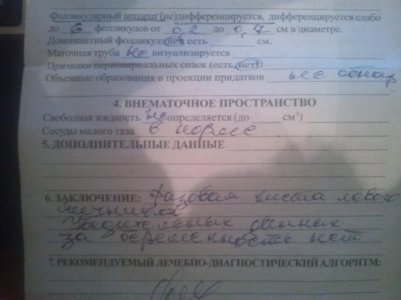 Фолликулярный аппарат (не)дифференцируется, дифференцируется слабо
до 6 фолликулов от 0,2 до 0,7 см в диаметре.
Доминантный фолликул (нет) есть см.
Маточная труба не визуализируется
Признаки периовариальных спаек (есть, нет)
Объемные образования в проекции придатков не обнар
4. ВНЕМАТОЧНОЕ ПРОСТРАНСТВО
Свободная жидкость не определяется (до см³)
Сосуды малого таза в норме
5. ДОПОЛНИТЕЛЬНЫЕ ДАННЫЕ
6. ЗАКЛЮЧЕНИЕ: фазовая киста левого
яичника
Убедительных данных
за беременность нет
7. РЕКОМЕНДУЕМЫЙ ЛЕЧЕБНО-ДИАГНОСТИЧЕСКИЙ АЛГОРИТМ: